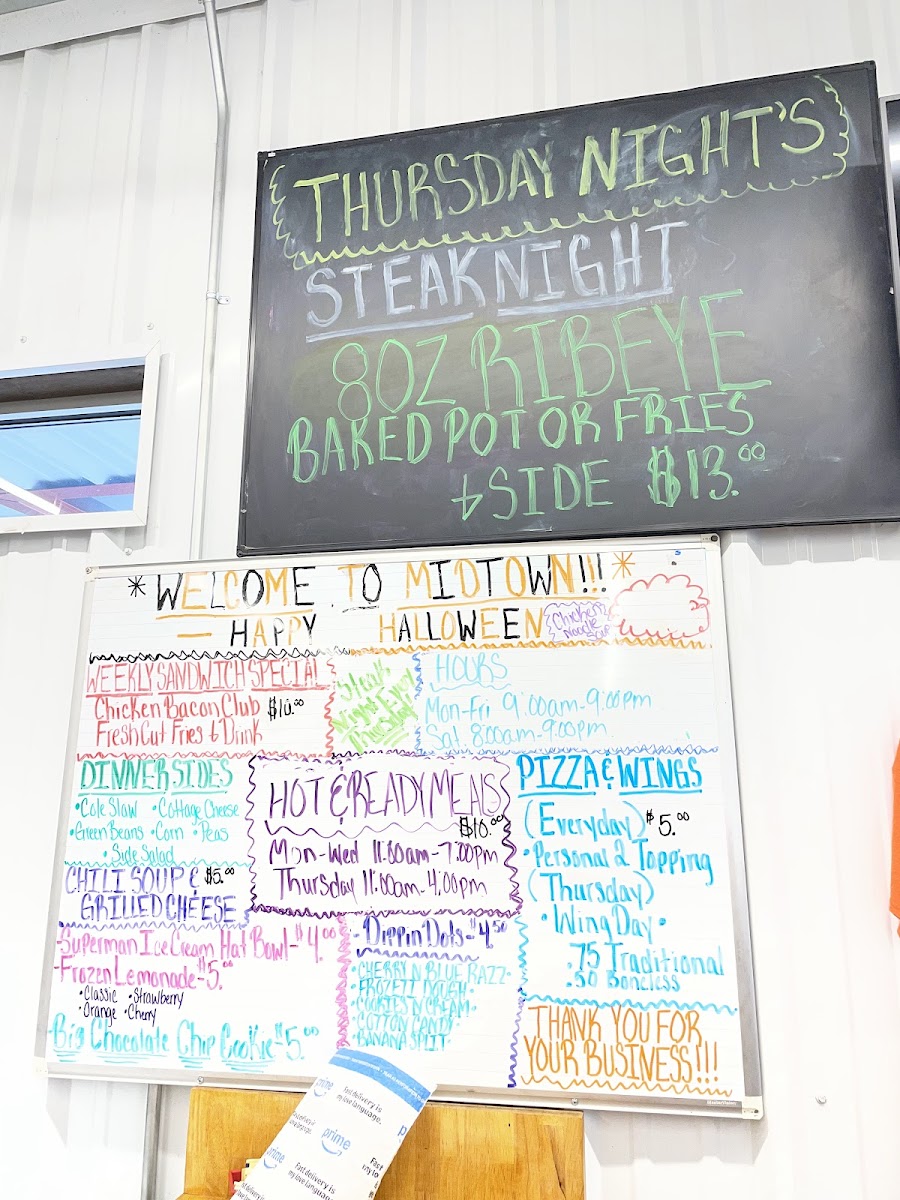 THURSDAY NIGHT'S
STEAK NIGHT
8OZ RIBEYE
BAKED POT OR FRIES
+ SIDE $13.00
* WELCOME TO MIDTOWN!!! *
- HAPPY HALLOWEEN
Chicken
Noodle
Soup
WEEKLY SANDWICH SPECIAL
Chicken Bacon Club $10.00
Fresh Cut Fries & Drink
Steak
Night Every
Thursday
HOURS
Mon-Fri 9:00am-9:00pm
Sat 8:00am-9:00pm
DINNER SIDES
• Cole Slaw • Cottage Cheese
• Green Beans • Corn • Peas
• Side Salad
CHILI SOUP & $5.00
GRILLED CHEESE
HOT & READY MEALS
$10.00
Mon-Wed 11:00am-7:00pm
Thursday 11:00am-4:00pm
PIZZA & WINGS
(Everyday) $5.00
• Personal 2 Topping
(Thursday)
• Wing Day •
• .75 Traditional
• .50 Boneless
-Superman Ice Cream Hat Bowl-$4.00
-Frozen Lemonade-$5.00
• Classic • Strawberry
• Orange • Cherry
Big Chocolate Chip Cookie-$5.00
• Dippin' Dots-$4.50
• CHERRY N BLUE RAZZ •
• FROZETI DOUGH •
• COOKIES N CREAM •
• COTTON CANDY •
• BANANA SPLIT •
THANK YOU FOR
YOUR BUSINESS!!!
prime
Fast delivery is
my love language.
prime
Fast delivery is
my love language.
prime